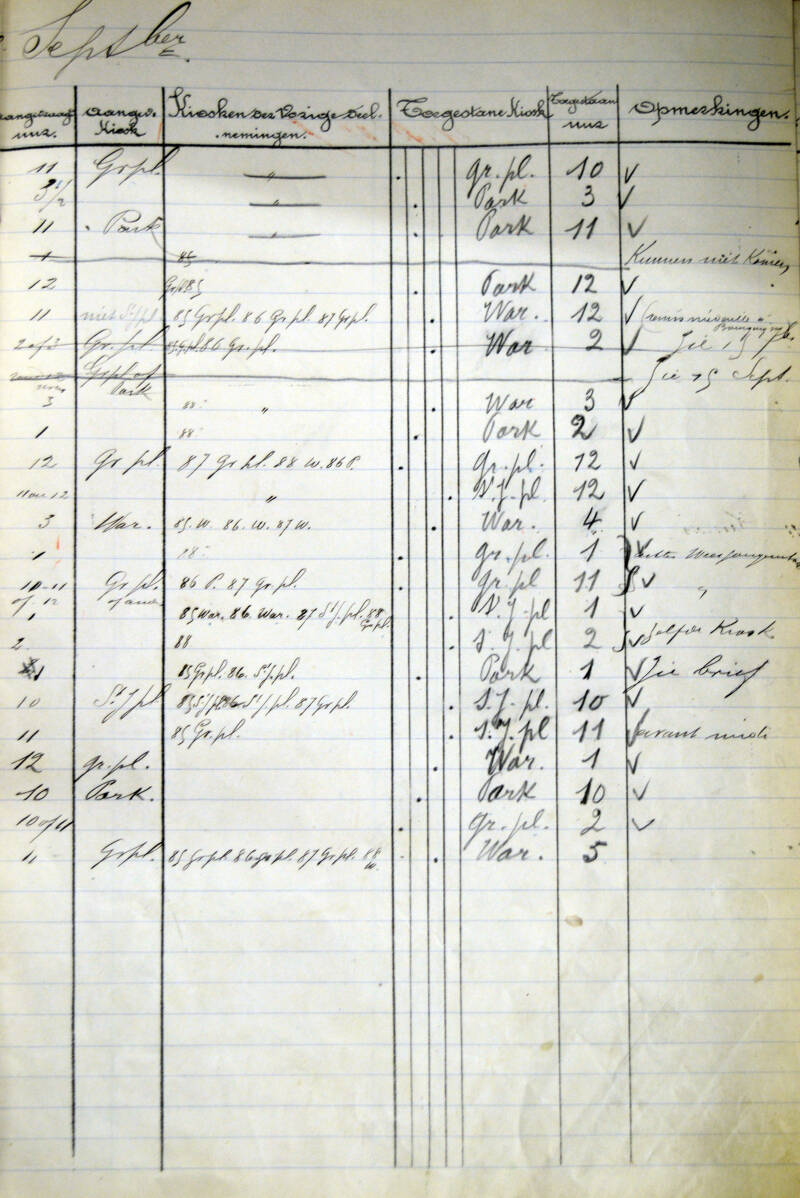 Septber
aangevraagd uur. aangev. Kiosk Kiosken der Vorige deelnemingen. Toegestane Kiosk Toegestaan uur Opmerkingen.
11 Gr pl. " gr. pl. 10 v
3 1/2 " Park 3 v
11 Park " Park 11 v
1 85 Kunnen niet Komen
12 Gr pl 85 Park 12 v
11 niet St J pl 85 Gr pl. 86 Gr. pl. 87 Gr pl. War. 12 v
2 of 3 Gr. pl 85 Gr pl. 86 Gr. pl. War 2 v Zie 15
Gr pl of Park Zie 15 Sept.
3 88 " War 3 v
1 88 Park 2 v
12 Gr pl 87 Gr pl. 88 W. 86 P. gr. pl. 12 v
11 ou 12 " S. J. pl 12 v
3 War. 85. W. 86. W. 87 W. War. 4 v
1 88 gr. pl. 1 v
10-11 of 12 Gr pl. of and 86 P. 87 Gr pl. gr. pl 11 v "
1 85 War. 86. War. 87 St J. pl. 88 Gr pl. S. J. pl 1 v
2 88 S. J. pl 2 v Zelfde Kiosk
1 85 Gr pl. 86. St J. pl. Park 1 v Zie brief
10 St J pl 85 St J pl 86 St J. pl. 87 Gr pl. S. J. pl. 10 v
11 85 Gr. pl. S. J. pl 11 v avant midi
12 gr. pl. War. 1 v
10 Park. Park 10 v
10 of 11 gr. pl. 2 v
11 Gr pl. 85 Gr pl. 86 Gr pl. 87 Gr pl. 88 W. War. 5